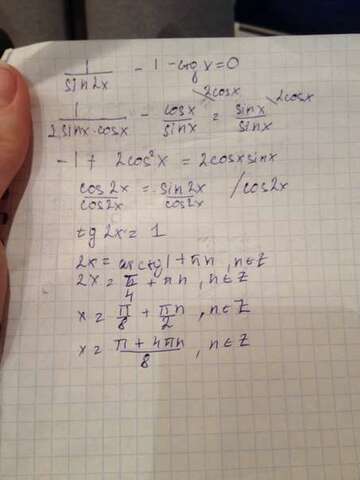 1/sin2x - 1 - ctg x = 0
1/(2 sinx · cosx) - cosx/sinx \2cosx = sinx/sinx \2cosx
-1 + 2cos²x = 2cosxsinx
cos2x/cos2x = sin2x/cos2x /cos2x
tg 2x = 1
2x = arctg1 + πn, n∈Z
2x = π/4 + πn, n∈Z
x = π/8 + πn/2, n∈Z
x = (π + 4πn)/8, n∈Z